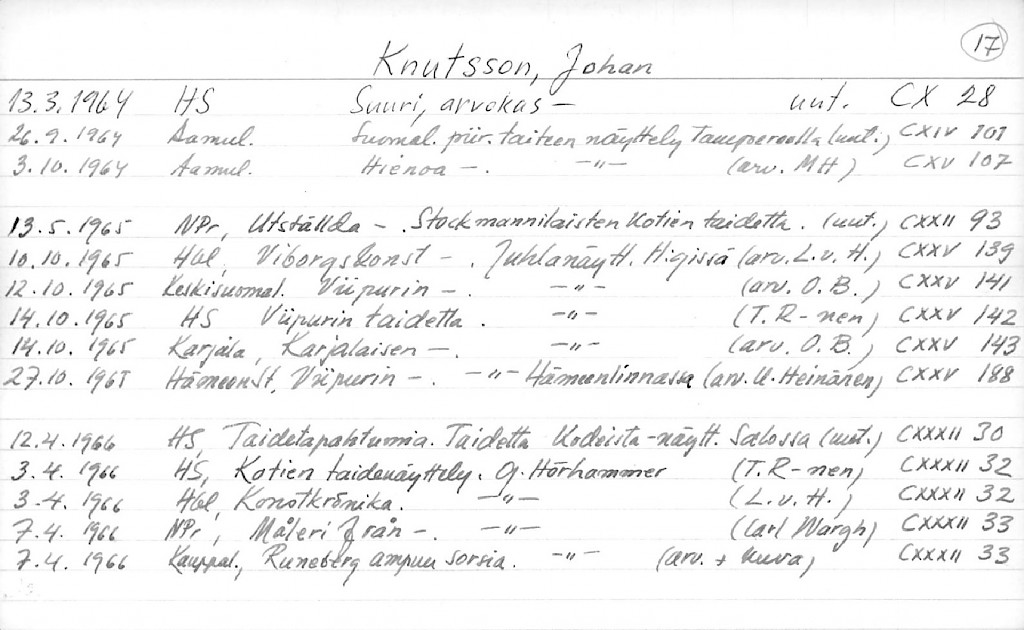 17
Knutsson, Johan
13.3.1964 HS Suuri, arvokas – uut. CX 28
26.9.1964 Aamul. Suomal. piir. taiteen näyttely Tampereella (uut.) CXIV 101
3.10.1964 Aamul. Hienoa –. –"– (arv. MH) CXV 107
13.5.1965 NPr, Utställda –. Stockmannilaisten kotien taidetta. (uut.) CXXII 93
10.10.1965 Hbl, Viborgskonst –. Juhlanäytt. H:gissä (arv. L.v.H.) CXXV 139
12.10.1965 Keskisuomal. Viipurin –. –"– (arv. O.B.) CXXV 141
14.10.1965 HS Viipurin taidetta. –"– (T.R-nen) CXXV 142
14.10.1965 Karjala, Karjalaisen –. –"– (arv. O.B.) CXXV 143
27.10.1965 HämeenSt, Viipurin –. –"– Hämeenlinnassa (arv. U. Heinänen) CXXV 188
12.4.1966 HS, Taidetapahtumia. Taidetta Kodeista-näytt. Salossa (uut.) CXXXII 30
3.4.1966 HS, Kotien taidenäyttely. G. Hörhammer (T.R-nen) CXXXII 32
3.4.1966 Hbl, Konstkrönika. –"– (L.v.H.) CXXXII 32
7.4.1966 NPr, Måleri från –. –"– (Carl Wargh) CXXXII 33
7.4.1966 Kauppal., Runeberg ampuu sorsia. –"– (arv. + kuva) CXXXII 33